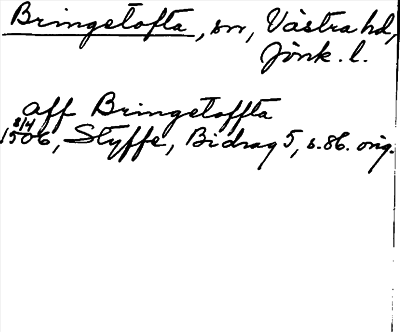 Bringetofta, sn, Västra hd,
Jönk. l.
aff Bringetoffta
8/4
1506, Styffe, Bidrag 5, s. 86. orig.